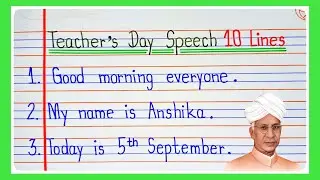 Teacher's Day Speech 10 Lines
1. Good morning everyone.
2. My name is Anshika.
3. Today is 5th September.